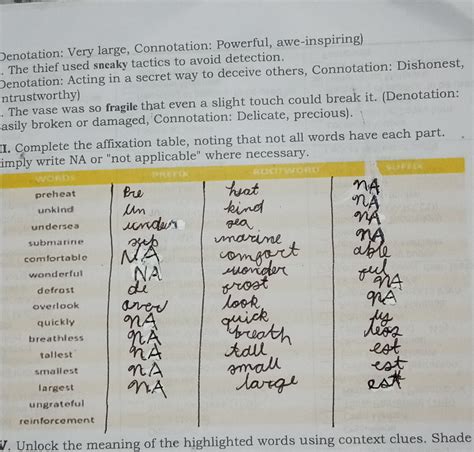 Denotation: Very large, Connotation: Powerful, awe-inspiring)
. The thief used sneaky tactics to avoid detection.
Denotation: Acting in a secret way to deceive others, Connotation: Dishonest,
ntrustworthy)
. The vase was so fragile that even a slight touch could break it. (Denotation:
asily broken or damaged, Connotation: Delicate, precious).
II. Complete the affixation table, noting that not all words have each part.
imply write NA or "not applicable" where necessary.
WORDS PREFIX ROOTWORD SUFFIX
preheat Pre heat NA
unkind un kind NA
undersea under sea NA
submarine sub marine NA
comfortable NA comfort able
wonderful NA wonder ful
defrost de frost NA
overlook over look NA
quickly NA quick ly
breathless NA breath less
tallest NA tall est
smallest NA small est
largest NA large est
ungrateful
reinforcement
V. Unlock the meaning of the highlighted words using context clues. Shade